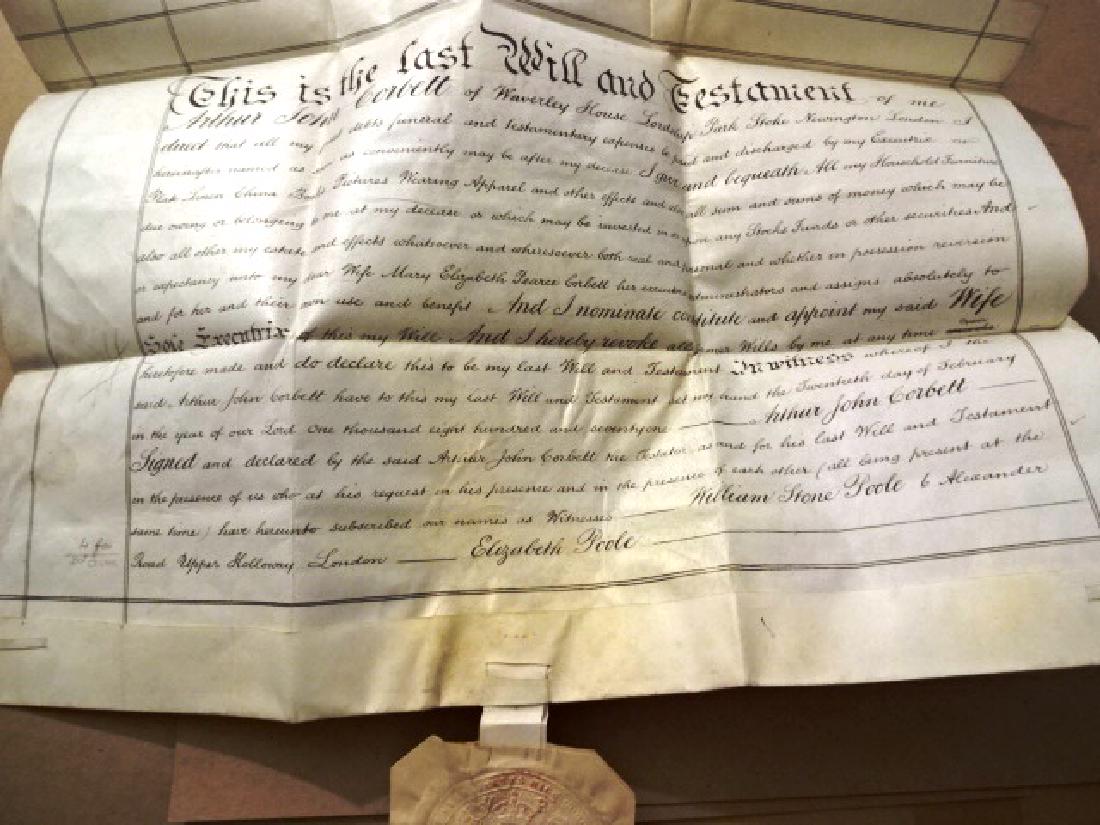 This is the last Will and Testament of me
Arthur John Corbett of Waverley House Lordship Park Stoke Newington London I
direct that all my debts funeral and testamentary expenses be paid and discharged by my Executrix
hereinafter named as soon as conveniently may be after my decease I give and bequeath All my Household Furniture
Plate Linen China Books Pictures Wearing Apparel and other effects and also all sum and sums of money which may be
due owing or belonging to me at my decease or which may be invested in or upon any Stocks Funds or other securities And
also all other my estate and effects whatsoever and wheresoever both real and personal and whether in possession reversion
or expectancy unto my dear Wife Mary Elizabeth Pearce Corbett her executors administrators and assigns absolutely to
and for her and their own use and benefit And I nominate constitute and appoint my said Wife
Sole Executrix of this my Will And I hereby revoke all former Wills by me at any time
heretofore made and do declare this to be my last Will and Testament In witness whereof I the
said Arthur John Corbett have to this my last Will and Testament set my hand the Twentieth day of February
in the year of our Lord One thousand eight hundred and seventyone Arthur John Corbett
Signed and declared by the said Arthur John Corbett the Testator as and for his last Will and Testament
in the presence of us who at his request in his presence and in the presence of each other (all being present at the
same time) have hereunto subscribed our names as Witnesses William Stone Poole 6 Alexander
Road Upper Holloway London Elizabeth Poole